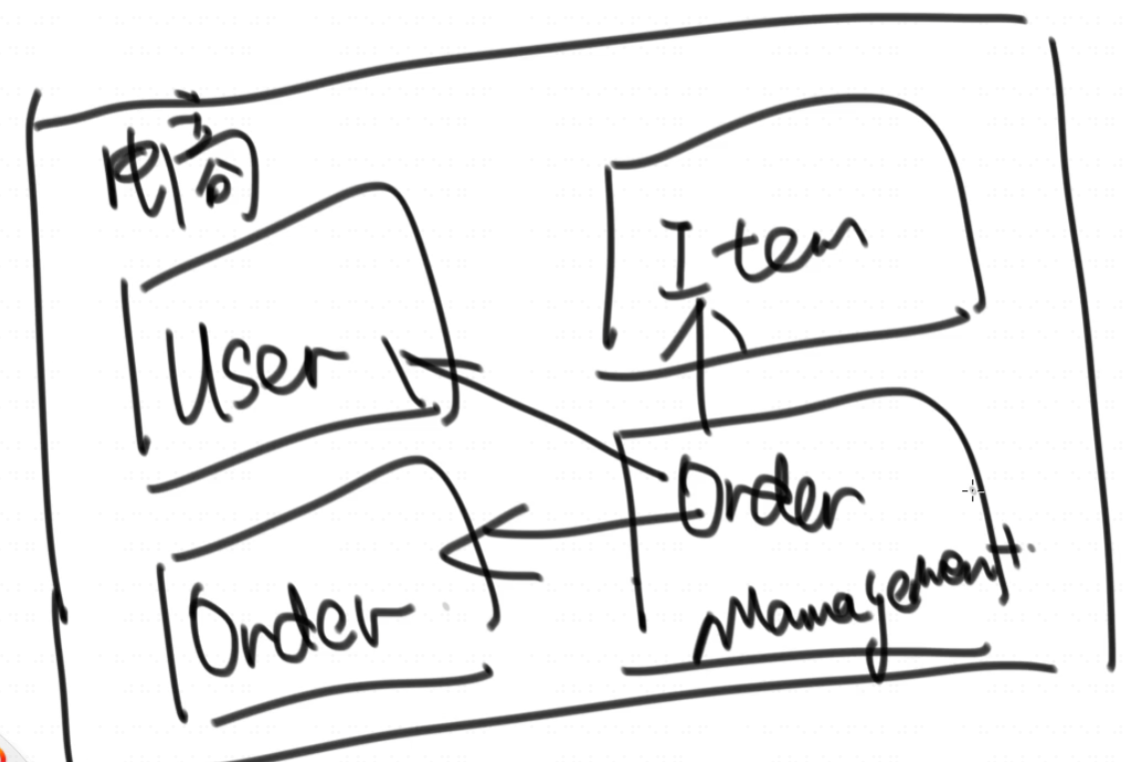 电商
User
Item
Order
Order
Management